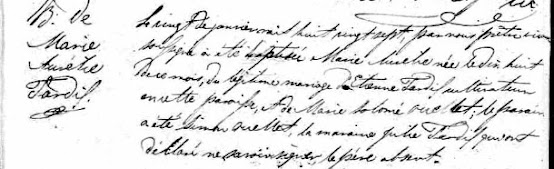 B. de
Marie
Aurélie
Tardif.
Le vingt de janvier mil huit vingt sept par nous prêtre
soussigné a été baptisée Marie Aurélie née le dix huit
de ce mois, du légitime mariage d'Etienne Tardif cultivateur
en cette paroisse, & de Marie Solomé Ouellet; le parain
a été Simon Ouellet, la maraine Julie Tardif qui ont
déclaré ne savoir signer, le père absent.